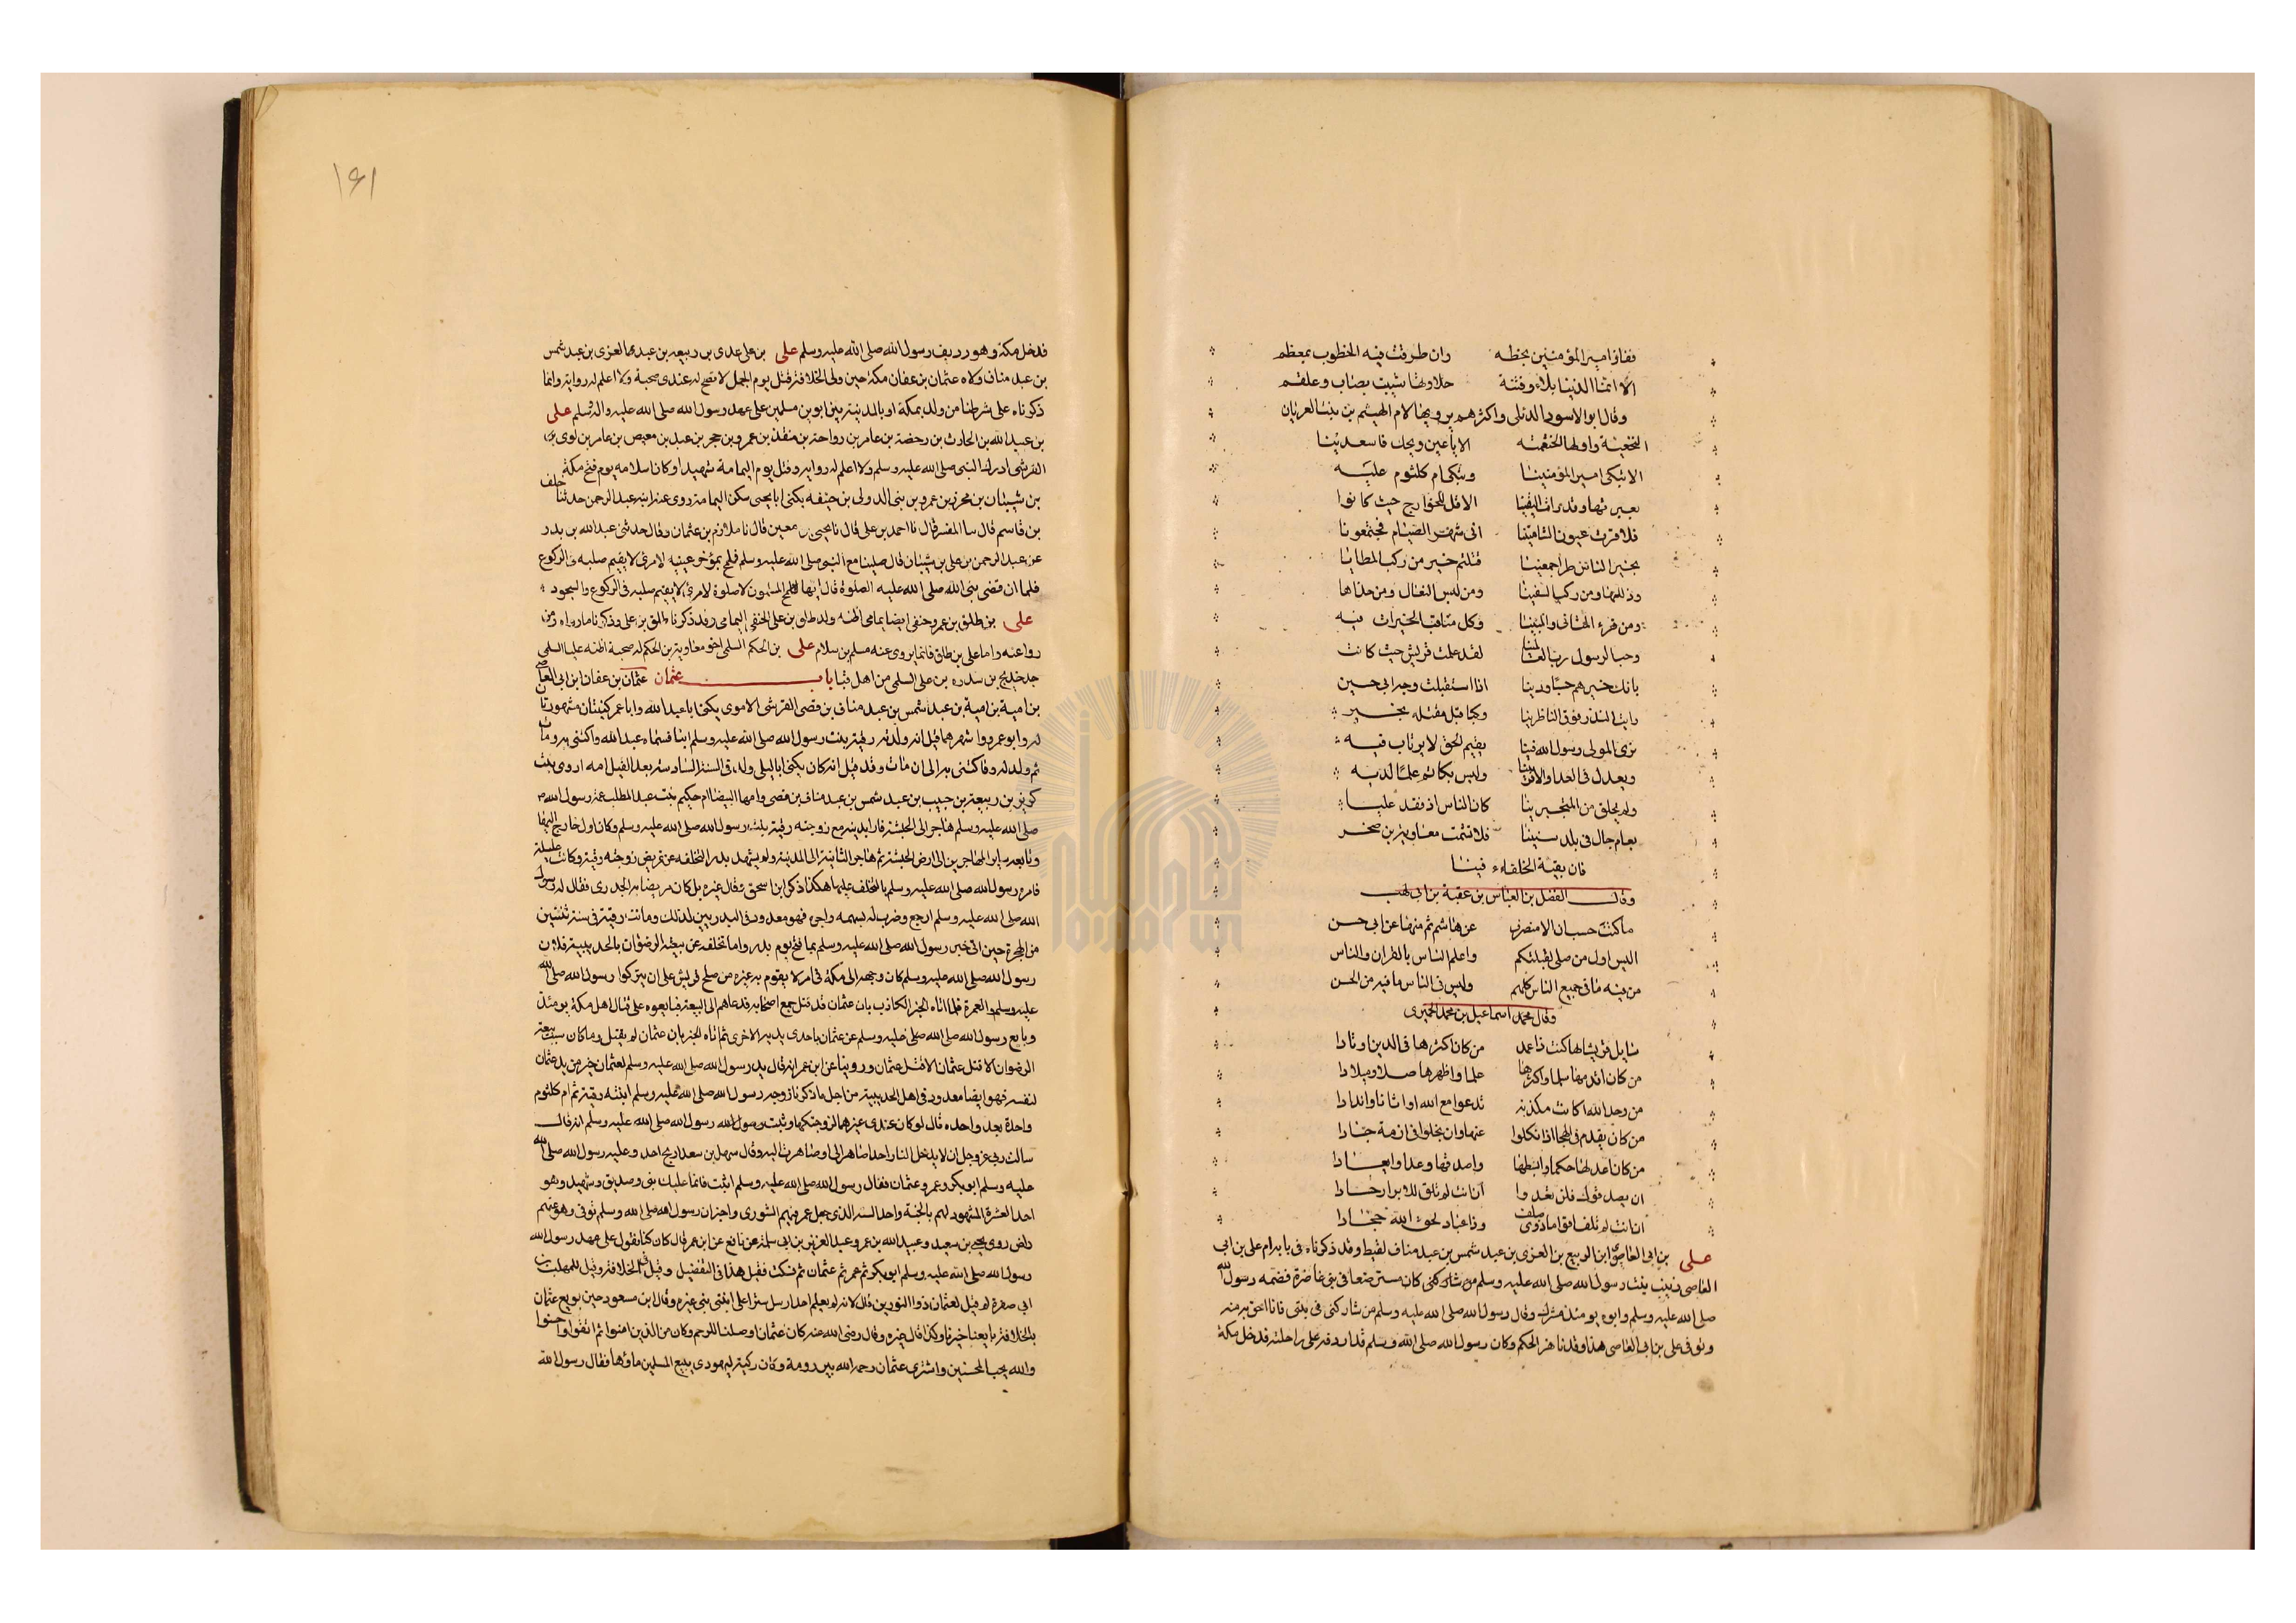 ففاز امير المؤمنين بخطه وان طرقت فيه الخطوب بمعظم
الا انما الدنيا بلاء وفتنة حلاوتها شيبت بصاب وعلقم
وقال ابو الاسود الدئلى واكثرهم يرويها لام الهيثم بن بنت العريان
النخعية واولها الخثعمية الا يا عين ويحك فاسعدينا
الا تبكى امير المؤمنينا وتبكى ام كلثوم عليه
بعبرتها وقد رات اليقينا الا قل للخوارج حيث كانوا
فلا قرت عيون الشامتينا افى شهر الصيام فجعتمونا
بخير الناس طرا جمعينا قتلتم خير من ركب المطايا
وذللها ومن ركب السفينا ومن لبس النعال ومن حذاها
ومن قرء المثانى والمبينا وكل مناقب الخيرات فيه
وحب الرسول رب العالمينا لقد علمت قريش حيث كانت
بانك خيرهم حبا ودينا اذا استقبلت وجه ابى حسين
رايت البدر فوق الناظرينا وكنا قبل مقتله بخير
نرى المولى رسول الله فينا يقيم الحق لا يرتاب فيه
ويعدل فى العدا والاقربينا وليس بكاتم علما لديه
ولم يخلق من المتجبرينا كان الناس اذ فقد عليا
بعام جال فى بلد سنينا فلا تشمت معاوية بن صخر
فان بقية الخلفاء فينا
وقال الفضل بن العباس بن عقبة بن ابى لهب
ما كنت حسبان الامنصرف عن هاشم ثم منها عن ابى حسن
اليس اول من صلى لقبلتكم واعلم الناس بالقران والناس
من فيه ما فى جميع الناس كلهم وليس فى الناس ما فيه من الحسن
وقال محمد اسماعيل بن محمد الحميرى
سايل قريشا بها كنت ذا عمد من كان اكثرها فى الدين اوتادا
من كان اقدمها سلما واكثرها علما واظهرها صلا وميلادا
من وحد الله اكانت مكذبة تدعوا مع الله اوثانا واندادا
من كان يقدم فى الهجا اذا نكلوا عنها وان بخلوا فى ازمة جادا
من كان اعدلها حكما وابسطها واصدقها وعدا وايعادا
ان يصدقوك فلن تعدوا ان انت لم تلق للابرار حسادا
ان انت لم تلف اقواما ذوى صلف وذا عناد لحق الله جحادا
على بن ابى العاص ابن الربيع بن العزى بن عبد شمس بن عبد مناف لقيط وقد ذكرناه فى بابه ام على بن ابى
العاصى زينب بنت رسول الله صلى الله عليه وسلم من شاركنى كان مسترضعا فى بنى غاضرة فضمه رسول الله
صلى الله عليه وسلم وابوه يومئذ مشرك وقال رسول الله صلى الله عليه وسلم من شاركنى فى بنتى فانا احق به منه
وتوفى على بن ابى العاصى هذا وقد ناهز الحكم وكان رسول الله صلى الله وسلم قد اردفه على راحلته فدخل مكة
١٤١
فدخل مكة وهو رديف رسول الله صلى الله عليه وسلم على بن على عدى بن ربيعه بن عبد العزى بن عبد شمس
بن عبد مناف ولاه عثمان بن عفان مكة حين ولى الخلافة قتل يوم الجمل لا تصح له عندى صحبة ولا اعلم له رواية وانما
ذكرناه على شرطنا من ولد بمكة او بالمدينة بين ابوين مسلمين على عهد رسول الله صلى الله عليه واله وسلم على
بن عبيد الله بن الحارث بن رحضة بن عامر بن رواحة بن منقذ بن عمرو بن حجر بن عبد بن معيص بن عامر بن لوى
القرشى ادرك النبى صلى الله عليه وسلم ولا اعلم له رواية وقتل يوم اليمامة شهيدا وكان اسلامه يوم فتح مكة
بن شيبان بن محرز بن عمرو بن بنى الدولى بن حنيفه يكنى ابا يحيى سكن اليمامة روى عنه ابنه عبد الرحمن حدثنا خلف
بن قاسم قال نا المفسر قال نا احمد بن على قال نا يحيى بن معين قال نا ملازم بن عثمان وقال حدثنى عبد الله بن بدر
عن عبد الرحمن بن على بن شيبان قال صلينا مع النبى صلى الله عليه وسلم فلمح بمؤخر عينيه لامرئ لا يقيم صلبه فى الركوع
فلما ان قضى نبى الله صلى الله عليه الصلوة قال ايها المسلمون لا صلوة لامرئ لا يقيم صلبه فى الركوع والسجود
على بن طلق بن عمرو حنفى ايضا يمامى اظنه ولد طلق بن على الحنفى اليمامى وقد ذكرنا طلق بن على وذكرنا ما رواه ومن
روا عنه واما على بن طلق فانما يروى عنه مسلم بن سلام على بن الحكم السلمى اخو معاوية بن الحكم له صحبة اظنه عليا السلمى
جد خديج بن سدره بن على السلمى من اهل قبا باب عثمان عثمان بن عفان ابن ابى العاص
بن امية بن امية بن عبد شمس بن عبد مناف بن قصى القرشى الاموى يكنى ابا عبد الله وابا عمر كنيتان مشهورتان
له وابو عمرو اشهرهما قيل انه ولد له رقية بنت رسول الله صلى الله عليه وسلم ابنا فسماه عبد الله واكتنى به ومات
ثم ولد له عمرو فاكتنى به الى ان مات وقد قيل انه كان يكنى ابا ليلى ولد فى السنة السادسة بعد الفيل امه اروى بنت
كريز بن ربيعة بن حبيب بن عبد شمس بن عبد مناف بن قصى وامها البيضا ام حكيم بنت عبد المطلب عمة رسول الله
صلى الله عليه وسلم هاجر الى الحبشة فارا بدينه مع زوجته رقية بنت رسول الله صلى الله عليه وسلم وكان اول خارج اليها
وتابعه سائر المهاجرين الى ارض الحبشة ثم هاجر الثانية الى المدينة ولم يشهد بدر التخلفه عن تمريض زوجته رقية وكانت عليلة
فامره رسول الله صلى الله عليه وسلم بالتخلف عليها هكذا ذكر ابن اسحق وقال غيره بل كان مريضا به الجدرى فقال له رسول
الله صلى الله عليه وسلم ارجع وضرب له بسهمه واجره فهو معدود فى البدريين لذلك وماتت رقية فى سنة ثنتين
من الهجرة حين اتى خبر رسول الله صلى الله عليه وسلم بما فتح يوم بدر واما تخلفه عن بيعة الرضوان بالحديبية فلان
رسول الله صلى الله عليه وسلم كان وجهه الى مكة فى امر لا يقوم به غيره من صلح قريش على ان يتركوا رسول الله صلى الله
عليه وسلم والعمرة فلما اتاه الخبر الكاذب بان عثمان قد قتل جمع اصحابه فدعاهم الى البيعة فبايعوه على قتال اهل مكة يومئذ
وبايع رسول الله صلى الله صلى عليه وسلم عن عثمان باحدى يديه الاخرى ثم اتاه الخبر بان عثمان لم يقتل وما كان سبب بيعة
الرضوان الا قتل عثمان وروينا عن ابن عمر انه قال يد رسول الله صلى الله عليه وسلم لعثمان خير من يد عثمان
لنفسه فهو ايضا معدود فى اهل الحديبية من اجل ما ذكرنا زوجه رسول الله صلى الله عليه وسلم ابنته رقية ثم ام كلثوم
واحدة بعد واحده قال لو كان عندى غيرهما لزوجتكها وثبت رسول الله رسول الله صلى الله عليه وسلم انه قال
سالت ربى عز وجل ان لا يدخل النار احدا صاهر الى او صاهرت اليه وقال سهل بن سعد ارتج احد وعليه رسول الله صلى الله
عليه وسلم ابو بكر وعمر وعثمان فقال رسول الله صلى الله عليه وسلم اثبت فانما عليك نبى وصديق وشهيد وهو
احد العشرة المشهود لهم بالجنة واحد الستة الذى جعل عمر فيهم الشورى واخبر ان رسول الله صلى الله وسلم توفى وهو عنهم
راض روى يحيى بن سعيد وعبيد الله بن عمر وعبد العزيز بن ابى سلمة عن نافع عن ابن عمر قال كان كنا نقول على عهد رسول الله
رسول الله صلى الله عليه وسلم ابو بكر ثم عمر ثم عثمان ثم نسكت فقيل هذا فى التفضيل وقيل فى الخلافة وقيل للمهلب بن
ابى صفرة لم قيل لعثمان ذو النورين قال لانه لم يعلم احد ارسل سترا على ابنتى نبى غيره وقال ابن مسعود حين بويع عثمان
بالخلافة بايعنا خيرنا وكذا قال غيره وقال رضى الله عنه كان عثمان اوصلنا للرحم وكان من الذين امنوا ثم اتقوا واحسنوا
والله يحب المحسنين واشترى عثمان رحمه الله بير رومة وكان ركية ليهودى يبيع المسلمين ماؤها فقال رسول الله